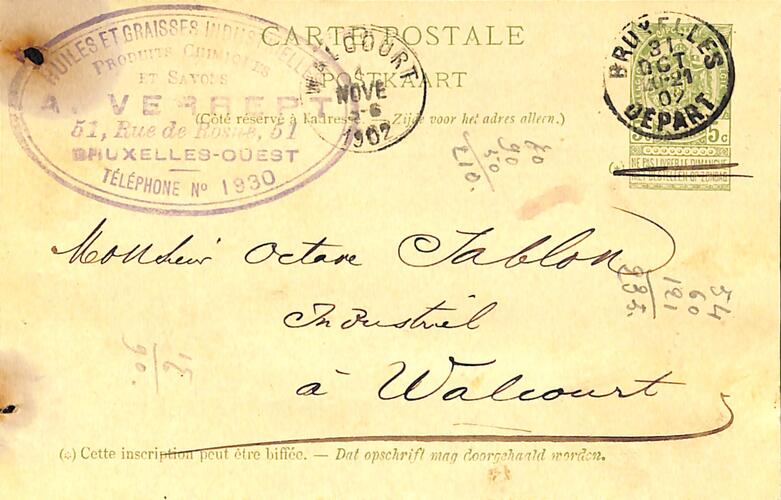 CARTE POSTALE
POSTKAART
(Côté réservé à l'adresse. — Zijde voor het adres alleen.)
HUILES ET GRAISSES INDUSTRIELLES
PRODUITS CHIMIQUES
ET SAVONS
51, Rue de Rosne, 51
BRUXELLES-OUEST
TÉLÉPHONE No 1930
WALCOURT
1
NOVE
1902
BRUXELLES
31
OCT
02
DEPART
5c
(*)
NE PAS LIVRER LE DIMANCHE
NIET BESTELLEN OP ZONDAG
60
90
50
210.
Monsieur Octave Tablon
Industriel
à Walcourt
54
60
121
235.
(*) Cette inscription peut être biffée. — Dat opschrift mag doorgehaald worden.